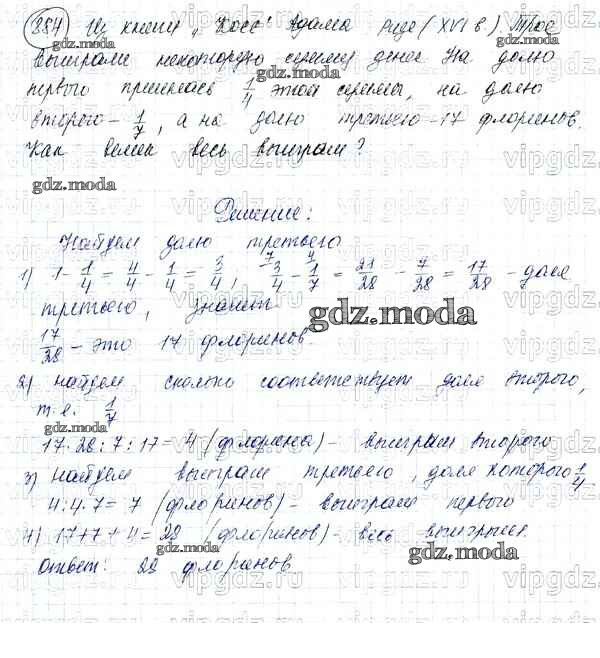 354) Из книги „Косс“ Адама Ризе (XVI в.) Трое
выиграли некоторую сумму денег. На долю
первого пришлась 1/4 этой суммы, на долю
второго - 1/7, а на долю третьего - 17 флоринов.
Как велик весь выигрыш?
gdz.moda
Решение:
Найдем долю третьего
1) 1 - 1/4 = 4/4 - 1/4 = 3/4; 3/4 - 1/7 = 21/28 - 7/28 = 17/28 - доля
третьего, значит
gdz.moda
17/28 - это 17 флоринов.
2) найдем сколько соответствует доля второго,
т.е. 1/7
gdz.moda
17·28:7:17 = 4 (флорина) - выиграл второго
3) найдем выиграл третьего, доля которого 1/4
4:4·7 = 7 (флоринов) - выиграл первого
4) 17+7+4 = 28 (флоринов) - весь выигрыш.
gdz.moda
Ответ: 28 флоринов.